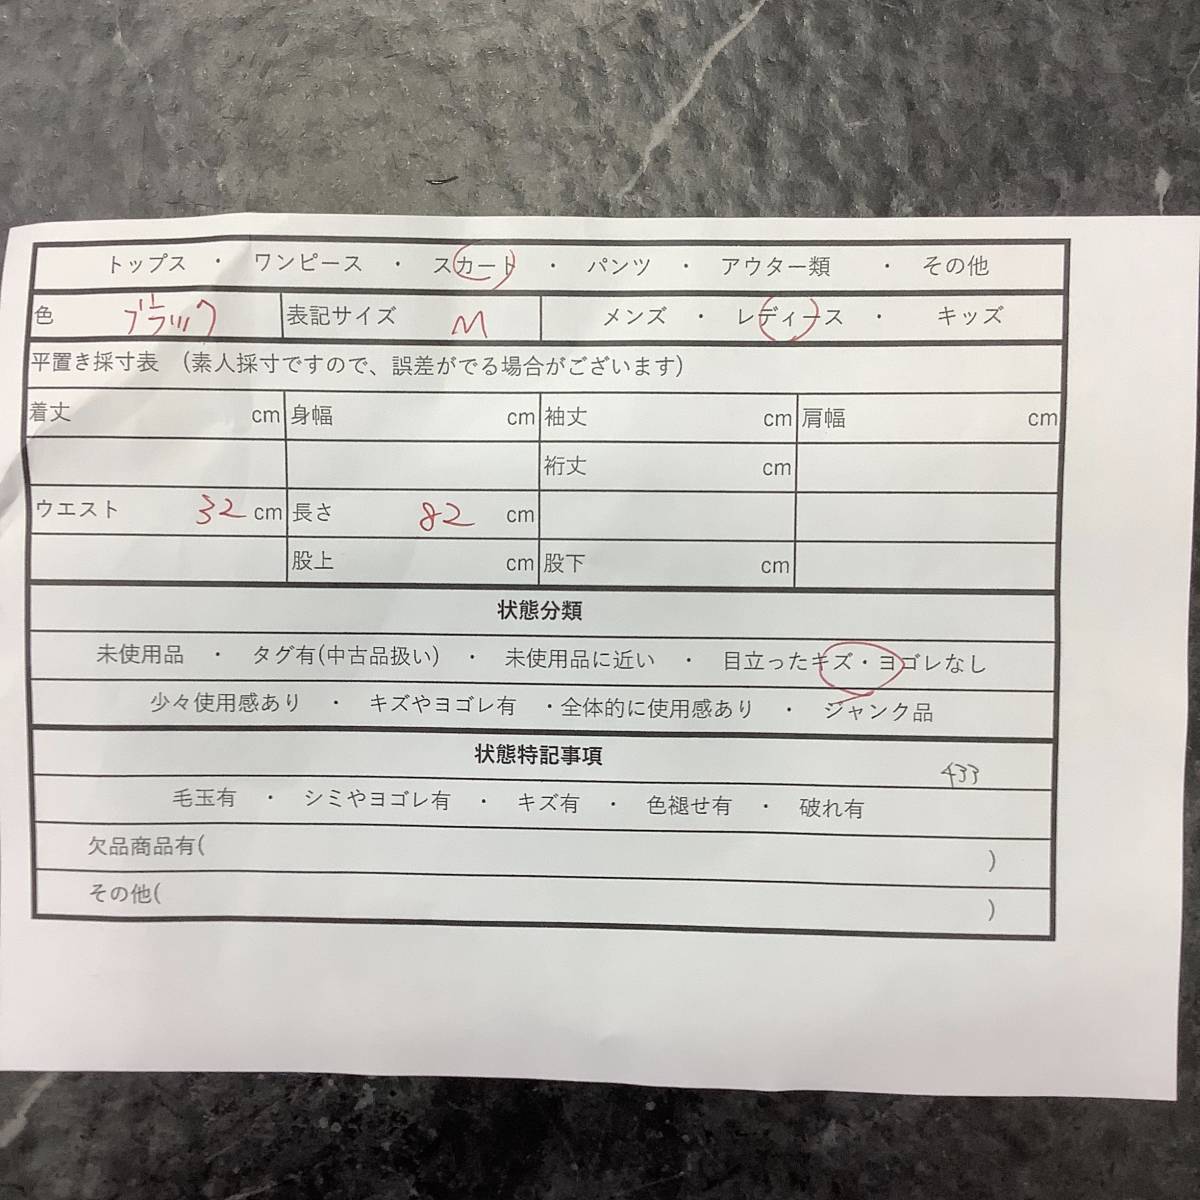 トップス ・ ワンピース ・ スカート ・ パンツ ・ アウター類 ・ その他
色 ブラック 表記サイズ M メンズ ・ レディース ・ キッズ
平置き採寸表 (素人採寸ですので、誤差がでる場合がございます)
着丈 cm 身幅 cm 袖丈 cm 肩幅 cm
裄丈 cm
ウエスト 32 cm 長さ 82 cm
股上 cm 股下 cm
状態分類
未使用品 ・ タグ有(中古品扱い) ・ 未使用品に近い ・ 目立ったキズ・ヨゴレなし
少々使用感あり ・ キズやヨゴレ有 ・全体的に使用感あり ・ ジャンク品
状態特記事項
433
毛玉有 ・ シミやヨゴレ有 ・ キズ有 ・ 色褪せ有 ・ 破れ有
欠品商品有( )
その他( )